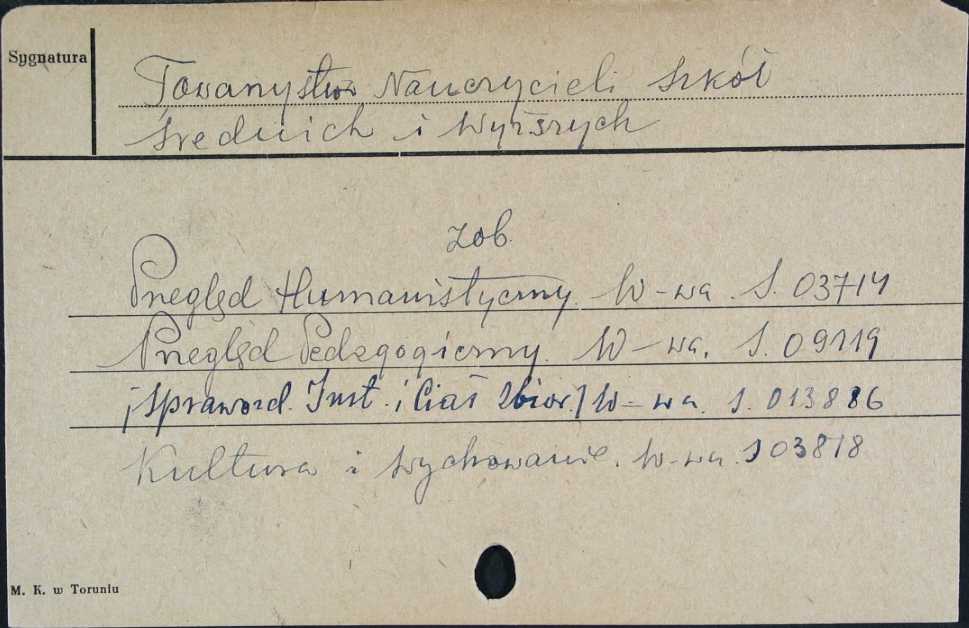 Sygnatura
Towarzystwo Nauczycieli Szkół
Średnich i Wyższych
zob.
Przegląd Humanistyczny. W-wa. S. 03714
Przegląd Pedagogiczny. W-wa. S. 09119
[Sprawozd. Inst. i Ciał Zbior.] W-wa. S. 013886
Kultura i Wychowanie. W-wa. S 03818
M. K. w Toruniu